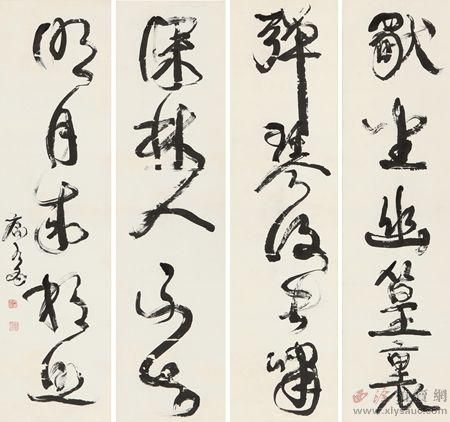 獨坐幽篁裏
彈琴復長嘯
深林人不知
明月來相照
西泠拍賣網
www.xlysauc.com